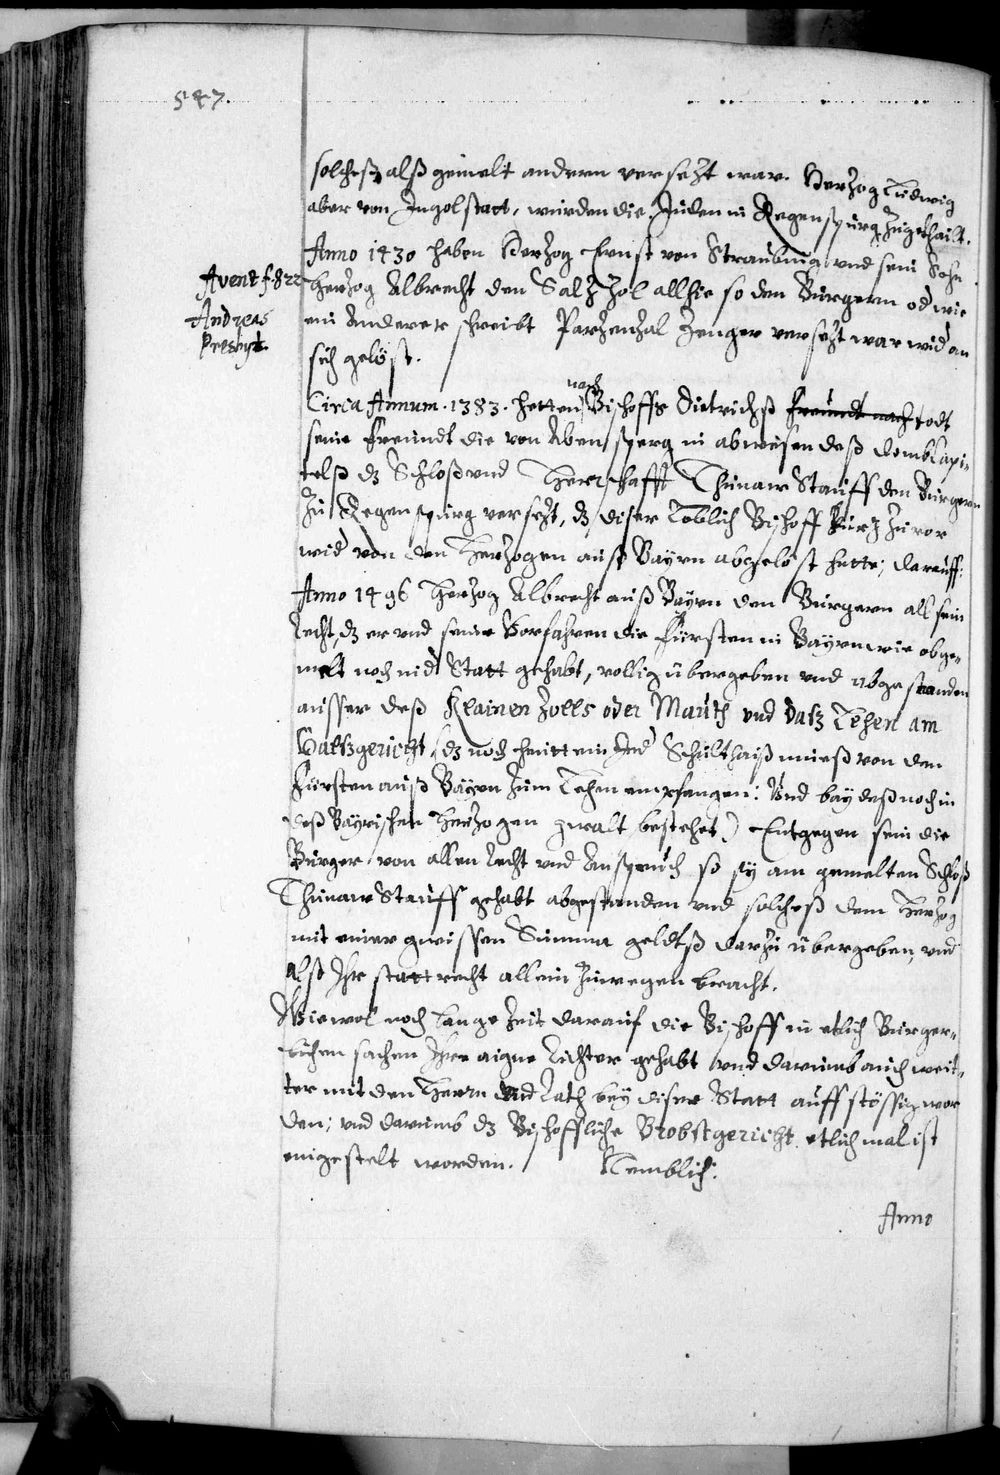 547.
solcheß alß gemelt andern versetzt war. Hertzog Ludwig
aber von Ingolstatt, wurden die Juden in Regenspurg zugethailt.
Anno 1430 haben Hertzog Ernst von Straubing und sein Sohn
Avent f. 822
Hertzog Albrecht den Saltzzol allhie so den Burgern od wie
Andreas
Presbyt.
ein Anderer schreibt Parzenzal Zenger versetzt war wid an
sich gelöst.
Circa Annum. 1383. hetten nach Bischoffs Dietrichß freundt nach todt
seine freundt die von Abensperg in abwesen deß dombCapi-
telß dz Schloß und Herrschafft Thunaw Stauff den Burgern
zu Regenspurg versetzt, dz diser Loblich Bischoff kurtz zuvor
wid von den Hertzogen auß Bayrn abgelöst hette; darauff:
Anno 1496 Hertzog Albrecht auß Bayrn den Burgern all sein
Recht, dz er und seine Vorfahren die fürsten in Bayrn wie obge-
melt noch in d Statt gehabt, vollig übergeben und abgestanden
ausser deß Klainen Zolls oder Mauth und daß Lehen am
Halßgericht (dz noch heutt ein Jed Schulthaiß mueß von den
fürsten auß Bayrn zum Lehen empfangen: Und bay deß noch in
deß Bayrischen Hertzogen gwalt bestehet) Entgegen sein die
Burger von allen Recht und Anspruch so sy am gemelten Schloß
Thunaw Stauff gehabt abgestanden und solcheß dem Hertzog
mit einer gwissen Summa geldtß darzu übergeben, und
alß Ihr stattrecht allein zuwegen bracht.
Wiewol noch lange Zeit darauf die Bischoff in etlich Burger-
lichen sachen Ihre aigne Richter gehabt und darumb auch weit-
ter mit den Herrn und Rath bey diser Statt auffstössig wor
den; und darumb dz Bischoffliche Brobstgericht etlich mal ist
eingestelt worden. Nemblich:
Anno